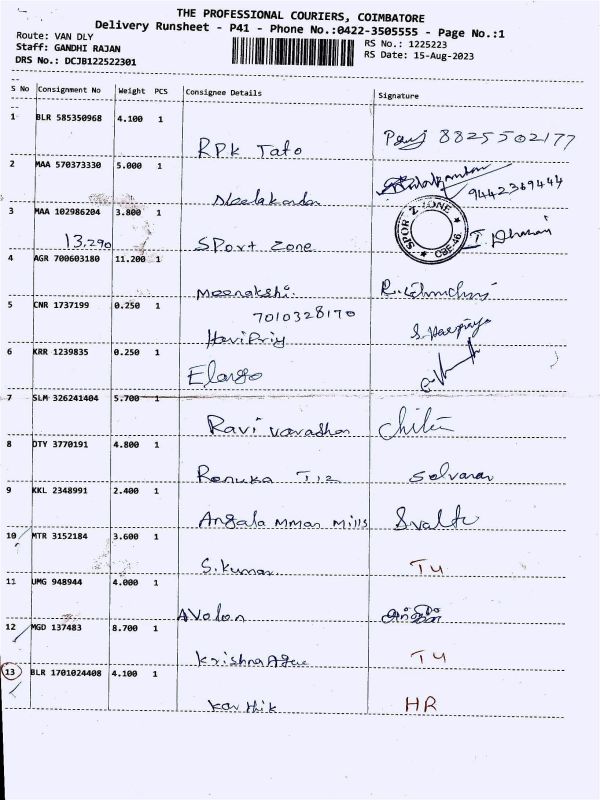 THE PROFESSIONAL COURIERS, COIMBATORE
Delivery Runsheet - P41 - Phone No.:0422-3505555 - Page No.:1
Route: VAN DLY
Staff: GANDHI RAJAN
DRS No.: DCJB122522301
RS No.: 1225223
RS Date: 15-Aug-2023
S No Consignment No Weight PCS Consignee Details Signature
1 BLR 585350968 4.100 1
RPK Tato 8825502177
2 MAA 570373330 5.000 1
Neelakandan 9442369444
3 MAA 102986204 3.800 1
13.290 Sport Zone SPORT ZONE CBE-46
4 AGR 700603180 11.200 1
Meenakshi.
7010328170
5 CNR 1737199 0.250 1
Haripriy S. Haripriya
6 KRR 1239835 0.250 1
Elango
7 SLM 326241404 5.700 1
Ravi varadhan
8 DTY 3770191 4.800 1
Renuka Selvaraj
9 KKL 2348991 2.400 1
Angala mman mills
10 MTR 3152184 3.600 1
S. Kumar T4
11 UMG 948944 4.000 1
Avolon
12 MGD 137483 8.700 1
Krishna Agec T4
13 BLR 1701024408 4.100 1
Karthik HR